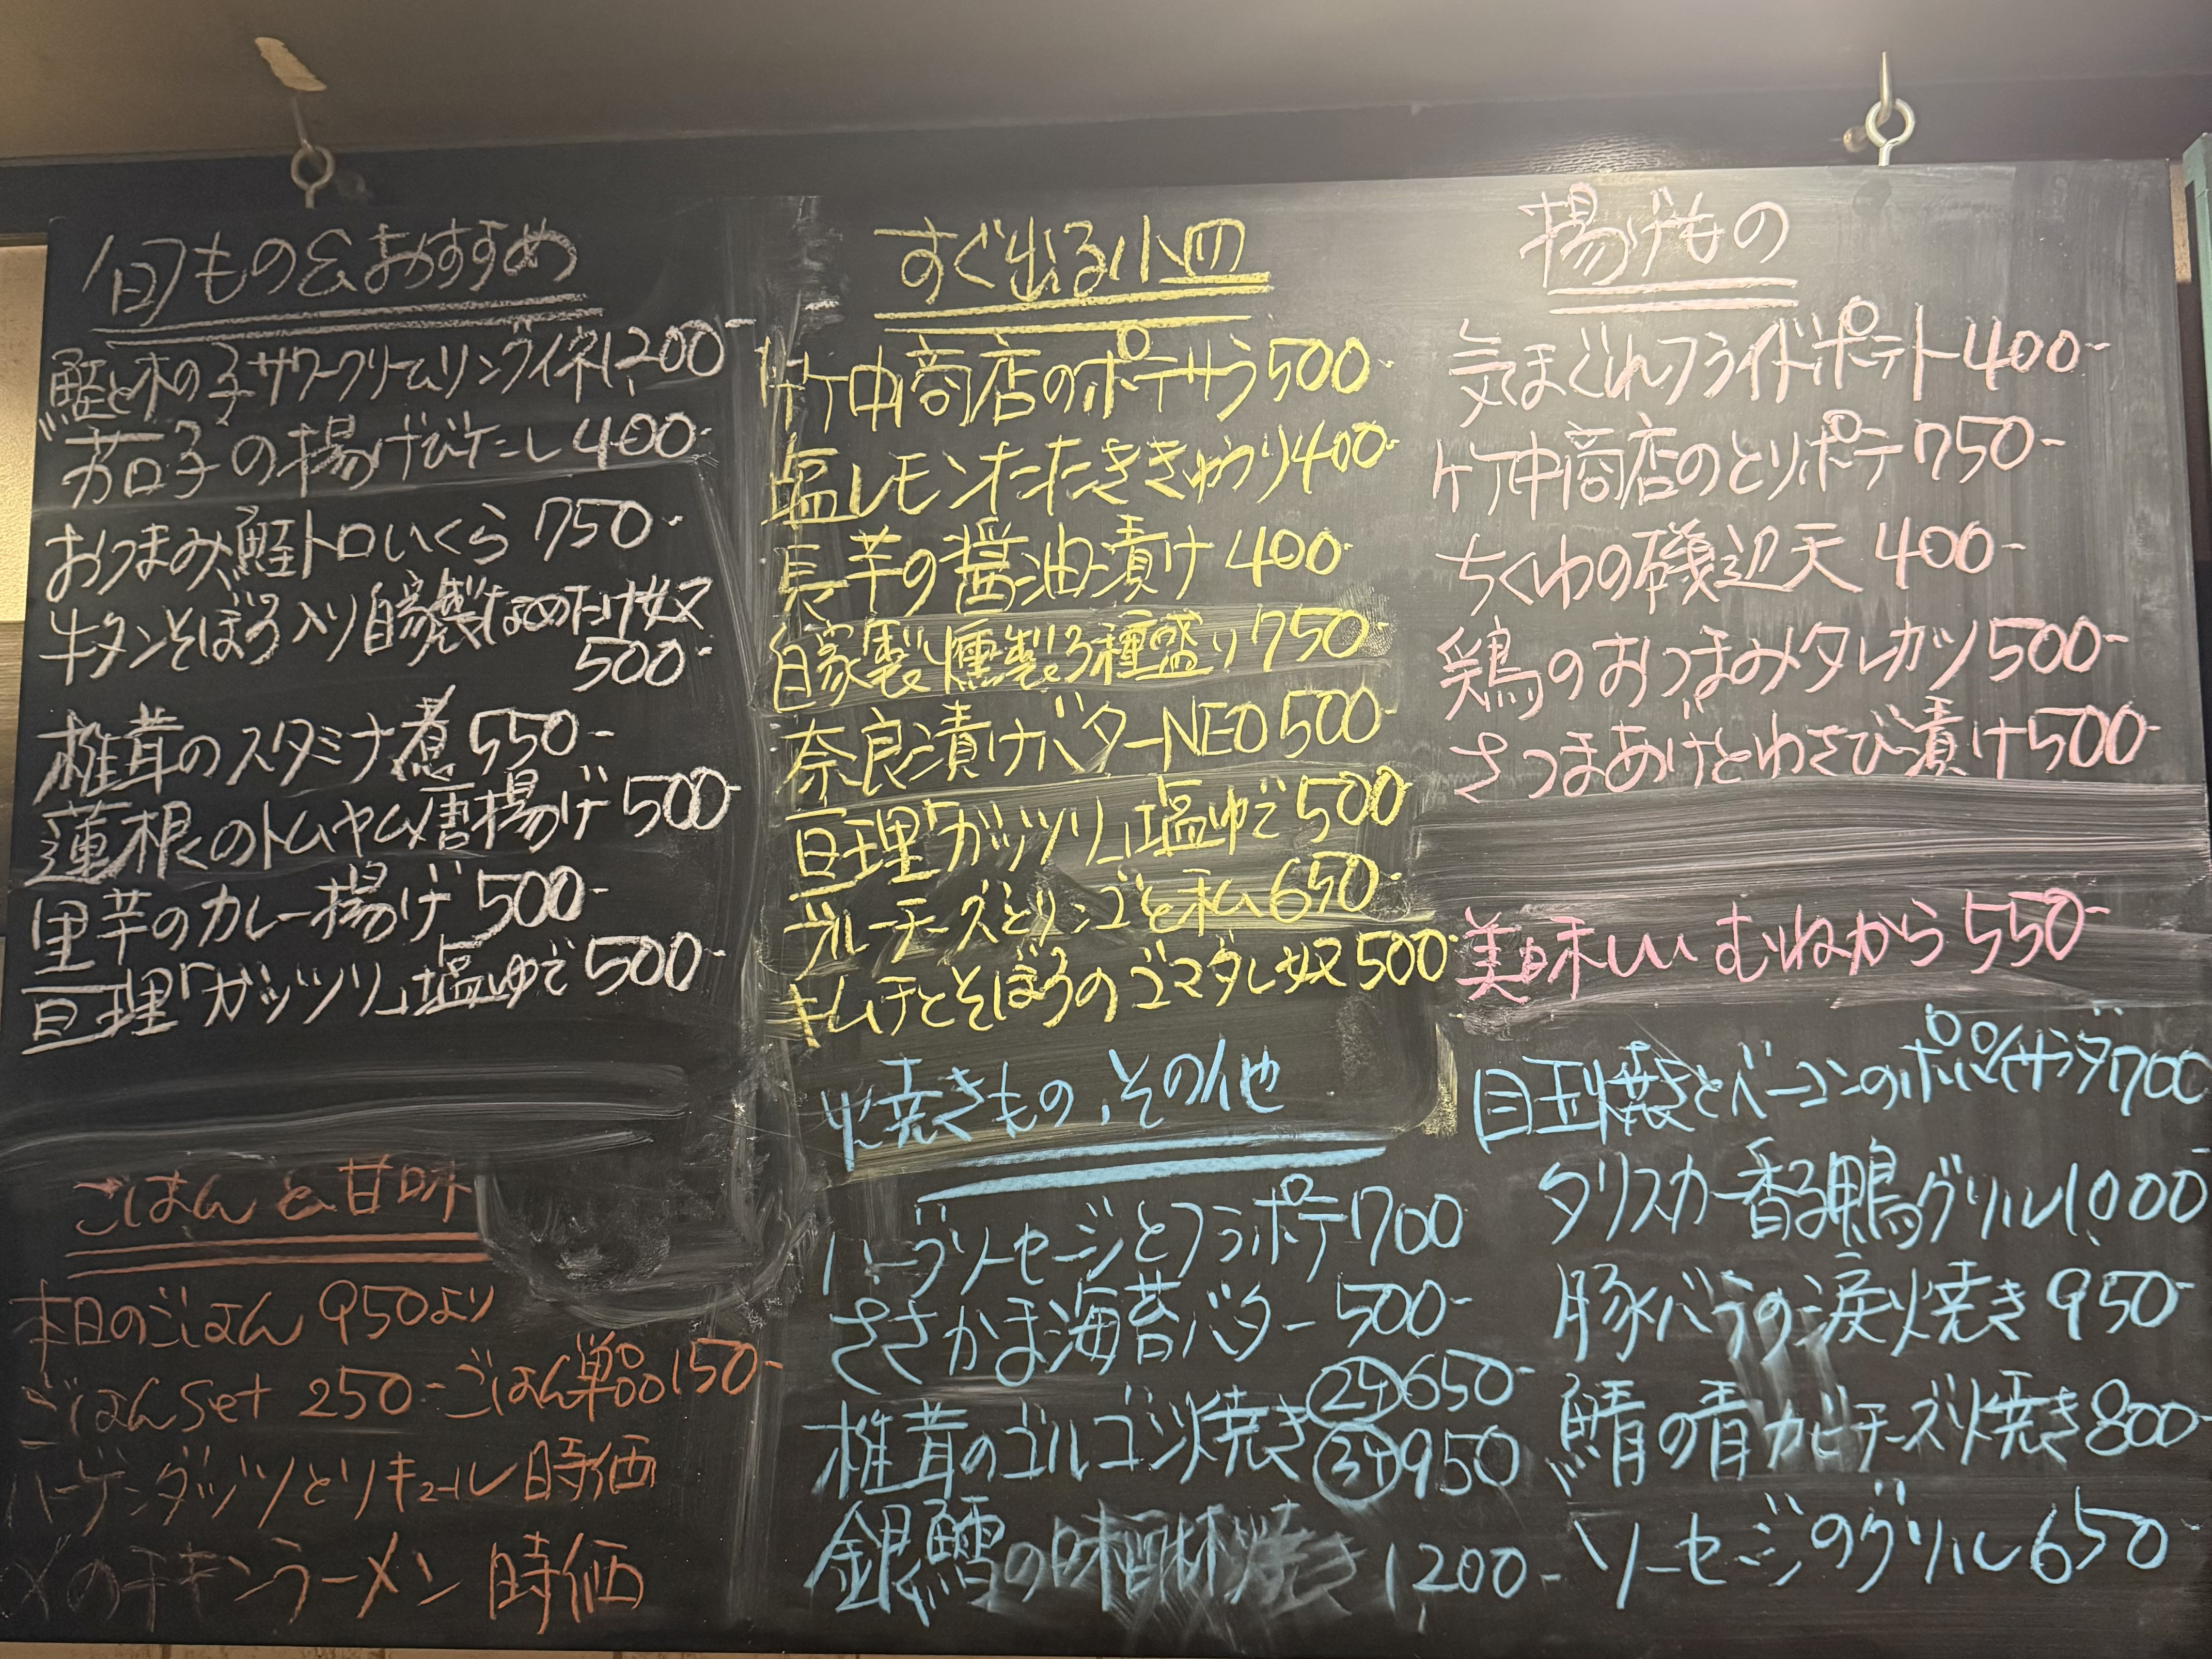 旬もの&おすすめ
鮭と木の子サワークリームリングイネ1,200-
茄子の揚げびたし400-
おつまみ鮭トロいくら 750-
牛タンそぼろ入り自家製なめたけ奴
500-
椎茸のスタミナ煮 550-
蓮根のトムヤム唐揚げ 500-
里芋のカレー揚げ 500-
亘理「ガッツリ」塩ゆで 500-
ごはんと甘味
本日のごはん 950より
ごはんset 250-ごはん単品150-
ハーゲンダッツとリキュール 時価
〆のチキンラーメン 時価
すぐ出る小皿
竹中商店のポテサラ500-
塩レモンたたききゅうり400-
長芋の醤油漬け 400-
自家製燻製3種盛り750-
奈良漬けバターNEO 500-
亘理「ガッツリ」塩ゆで 500-
ブルーチーズとリンゴと私 650-
キムチとそぼろのゴマダレ奴 500-
焼きもの、その他
ハーブソーセージとフラポテ1700
ささかま海苔バター 500-
椎茸のゴルゴン焼き
②650-
③950
銀鱈の味醂焼き 1,200-
揚げもの
気まぐれフライドポテト400-
竹中商店のとりポテ 750-
ちくわの磯辺天 400-
鶏のおつまみタレカツ 500-
さつまあげとわさび漬け500-
美味しい むねから 550-
目玉焼きとベーコンのポパイサラダ1700
タリスカー香る鴨グリル1,000-
豚バラの涙焼き 950-
鯖の青カビチーズ焼き 800-
ソーセージのグリル 650-